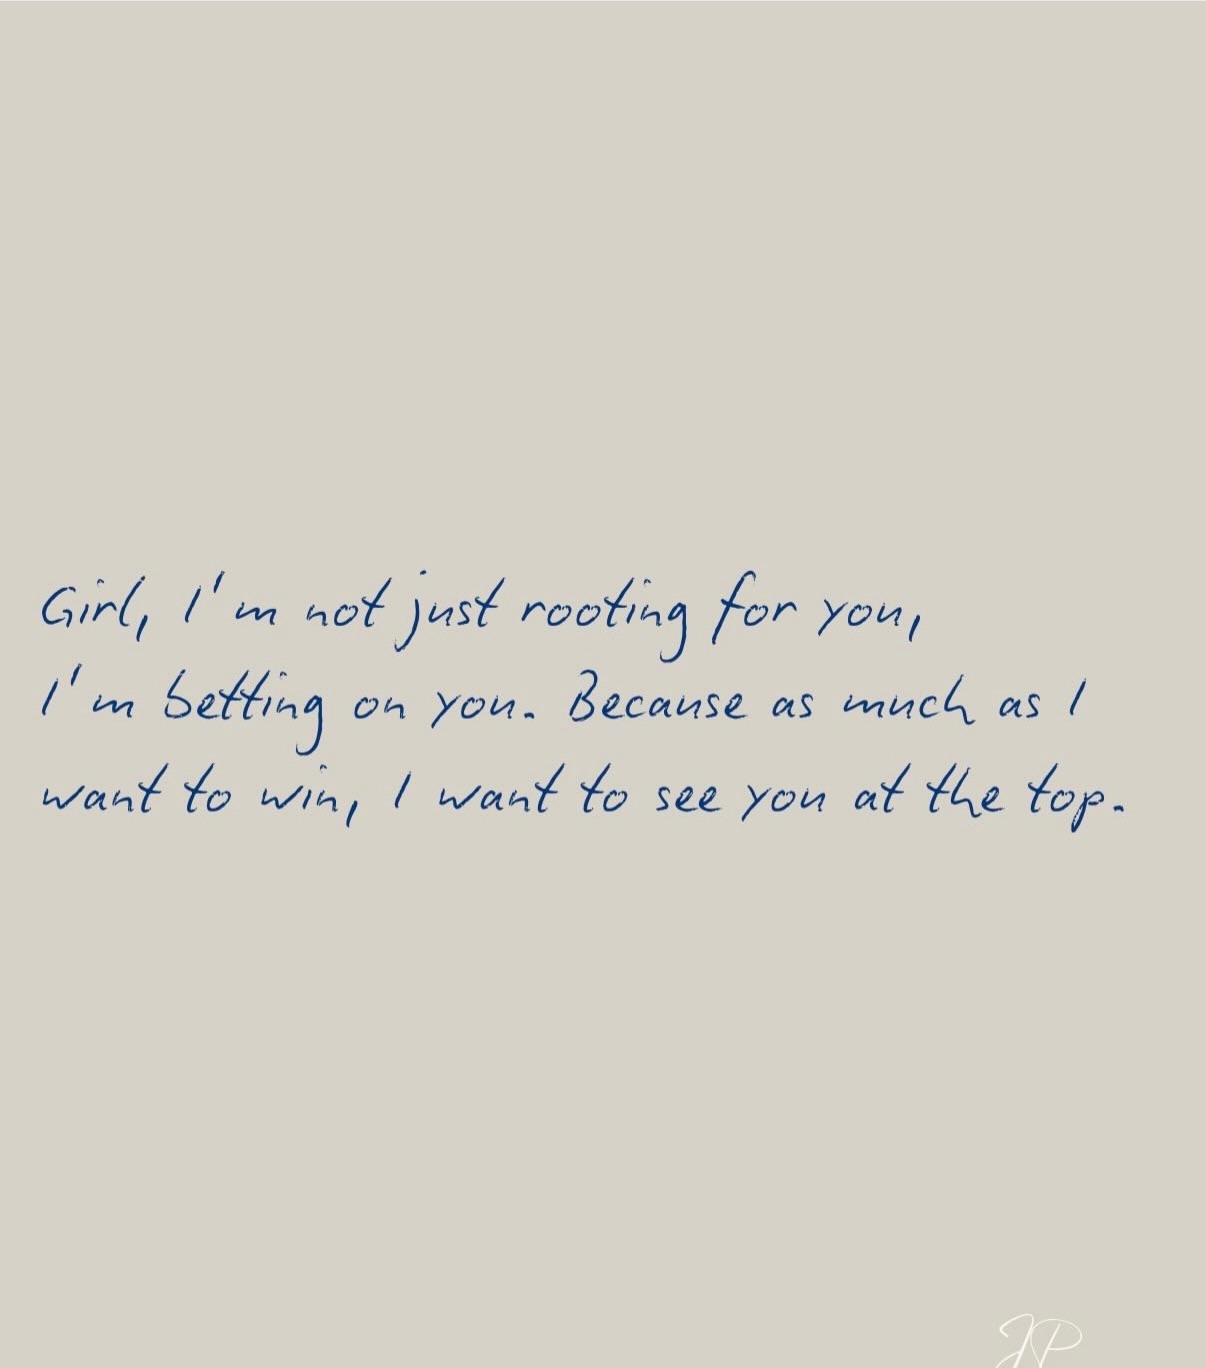 Girl, I'm not just rooting for you,
I'm betting on you. Because as much as I
want to win, I want to see you at the top.
JP